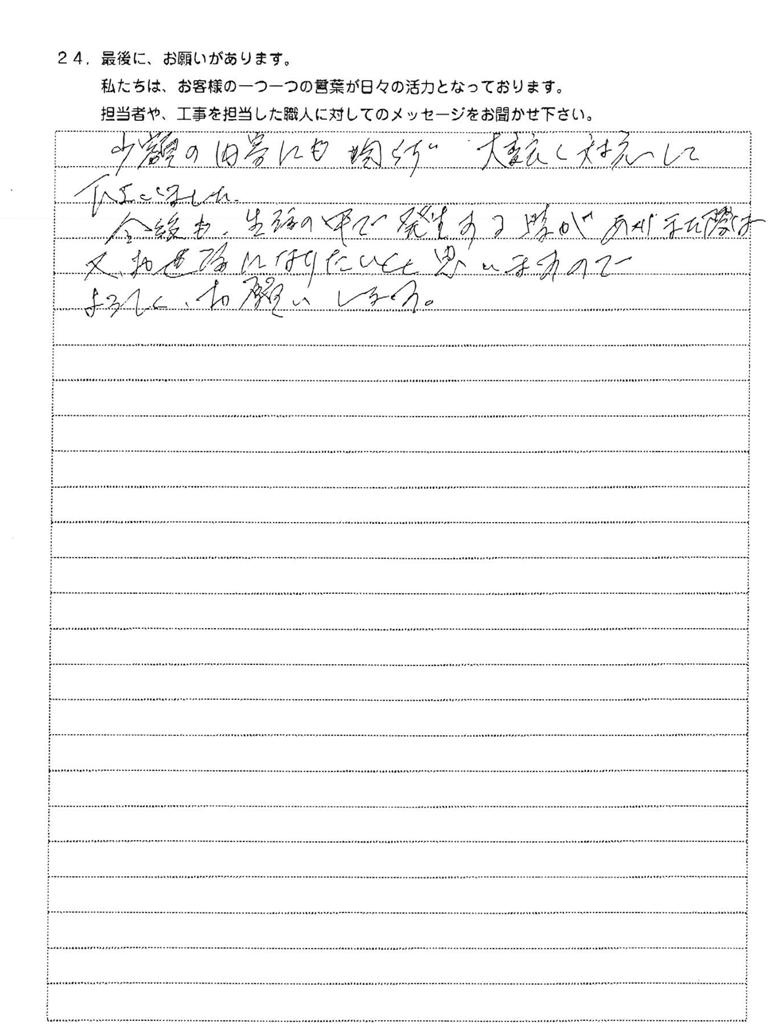 24．最後に、お願いがあります。
私たちは、お客様の一つ一つの言葉が日々の活力となっております。
担当者や、工事を担当した職人に対してのメッセージをお聞かせ下さい。
少額の にも 大変良く対応して
下さいました。
今後も、生活の中で発生する事が ありました際は
又、お世話になりたいと思いますので
よろしく、お願いします。